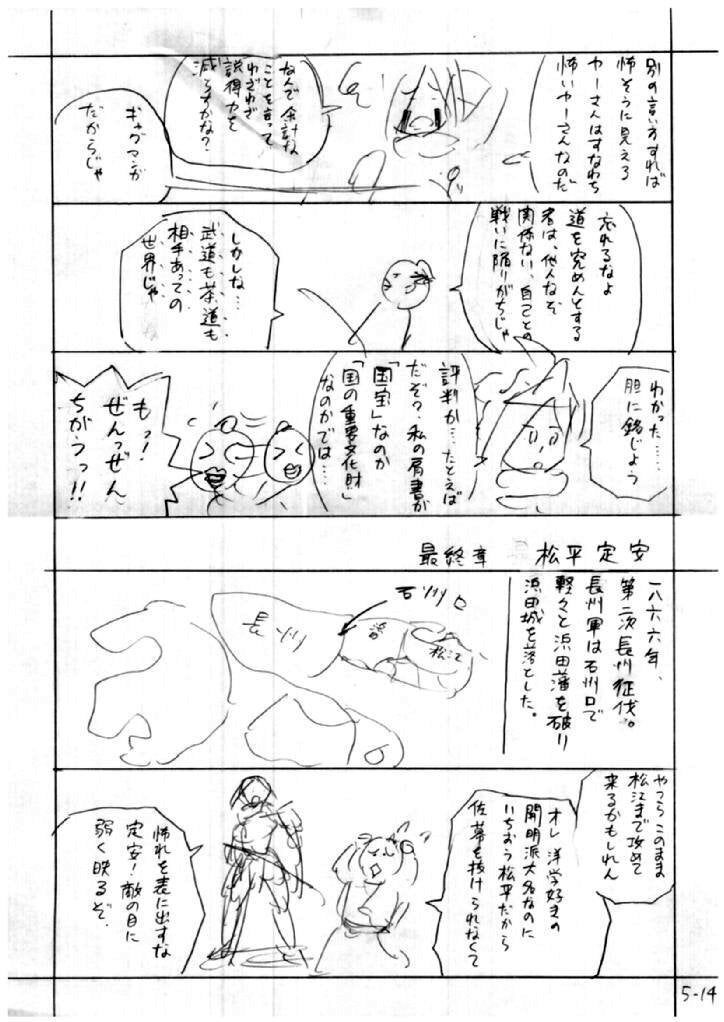 別の言い方すれば
怖そうに見える
ヤーさんはすなわち
怖いヤーさんなのだ
なんで余計な
ことを言って
わざわざ
説得力を
減らすかな？
ギャグマンガ
だからじゃ
忘れるなよ
道を究めんとする
者は、他人なぞ
関係ない、自己との
戦いに陥りがちじゃ
しかしな…
武道も茶道も
相手あっての
世界じゃ
わかった……
胆に銘じよう
評判か…たとえば
だぞ？私の肩書が
「国宝」なのか
「国の重要文化財」
なのかでは…
もっ！
ぜんっぜん
ちがうっ！！
最終章 松平定安
一八六六年、
第二次長州征伐。
長州軍は石州口で
軽々と浜田藩を破り
浜田城を落とした。
石州口
長州
松江
やつらこのまま
松江まで攻めて
来るかもしれん
オレ洋学好きの
開明派大名なのに
いちおう松平だから
佐幕を抜けられなくて
怖れを表に出すな
定安！敵の目に
弱く映るぞ．
5-14